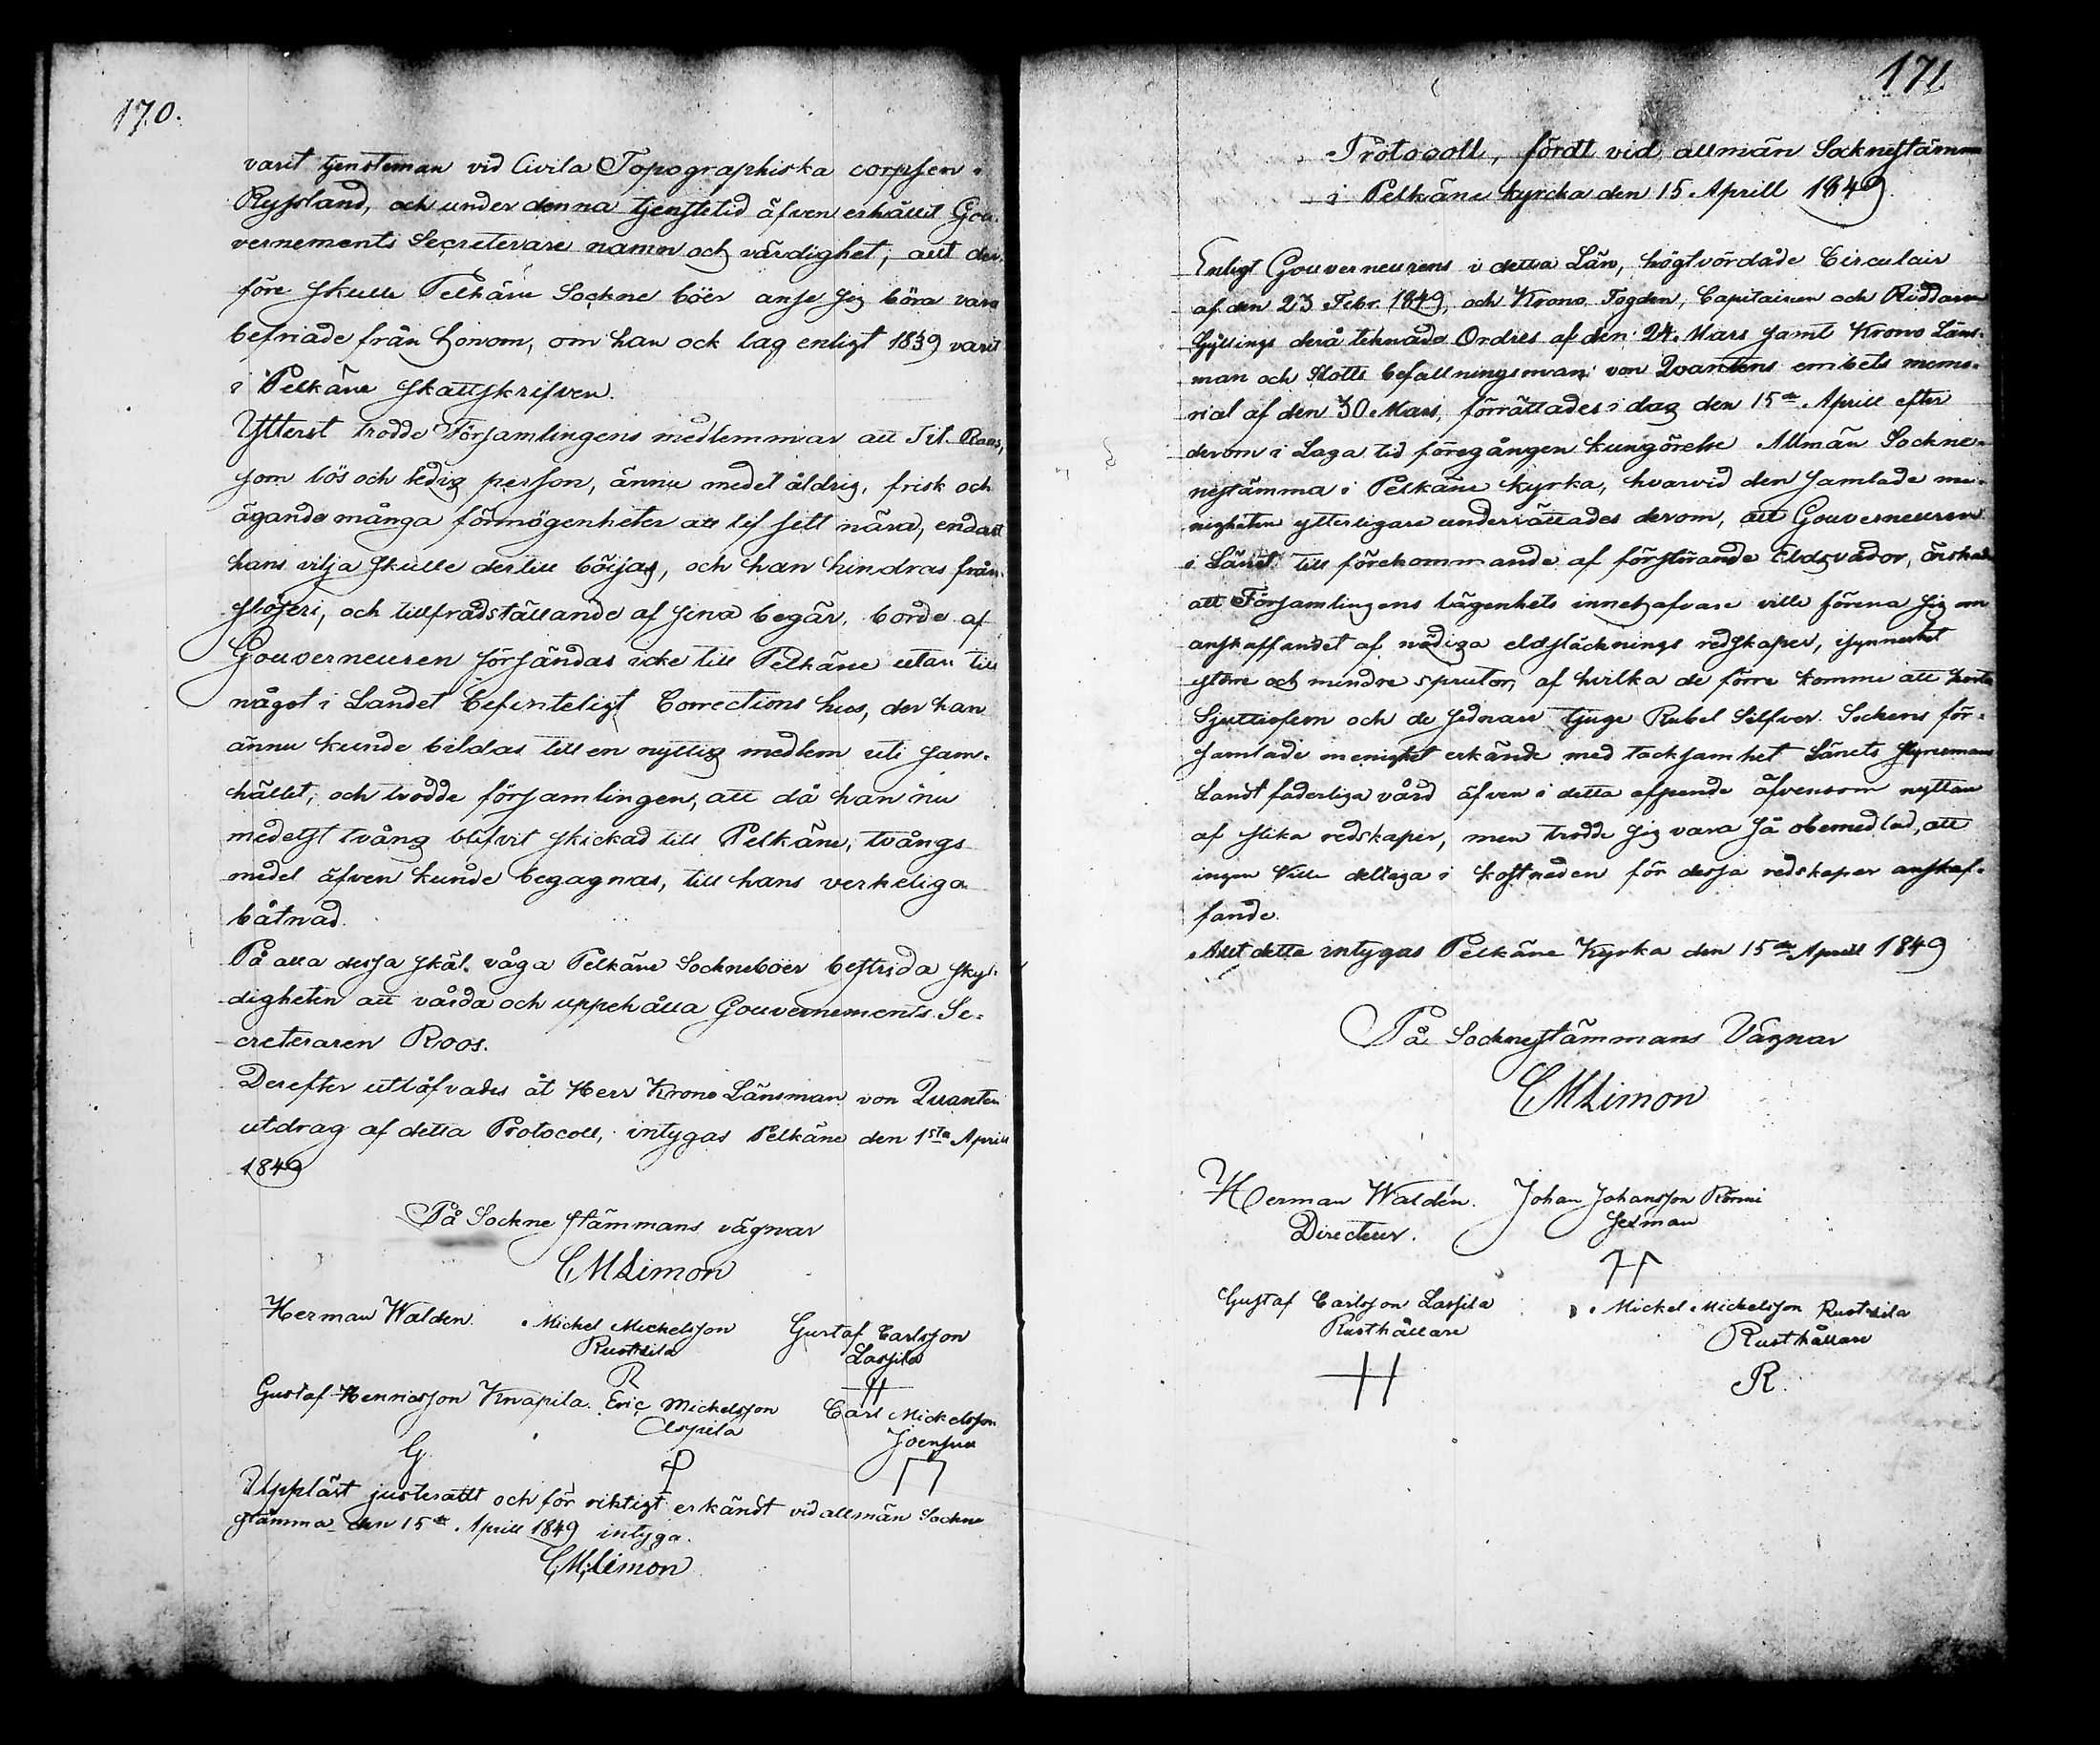 170.
varit tjensteman vid Civila Topographiska corpsen i
Ryssland, och under denna tjenstetid äfven erhållit Gou-
vernements Secreterare namn och värdighet; att der-
före skulle Pelkäne Sockne böer anse sig böra vara
befriade från honom, om han ock lag enligt 1839 varit
i Pelkäne skattskrifven.
Ytterst trodde Församlingens medlemmar att Tit. Roos,
som lös och ledig person, ännu medel åldrig, frisk och
ägande många förmögenheter att lif sitt nära, endast
hans vilja skulle dertill böijas, och han hindras från
slöseri, och tillfradsställande af sina begär, borde af
Gouverneuren försändas icke till Pelkäne utan till
något i Landet befinteligt Corrections hus, der han
ännu kunde bildas till en nyttig medlem uti sam-
hället; och trodde församlingen, att då han nu
medelst tvång blifvit skickad till Pelkäne, tvångs
medel äfven kunde begagnas, till hans verkeliga
båtnad.
På alla dessa skäl våga Pelkäne Sockneboer bestrida skyl-
digheten att vårda och uppehålla Gouvernements Se-
creteraren Roos.
Derefter utlofvades åt Herr Krono Länsman von Quanten
utdrag af detta Protocoll, intygas Pelkäne den 1sta Aprill
1849
På Sockne stämmans vägnar
CMLimon
Herman Walden. Michel Michelsson Gustaf Carlsson
Ruokkila Lassila
R H
Gustaf Henricsson Knapila. Eric Michelsson Carl Mickelsson
Uspila Joensuu
G.
Uppläst justeradt och för riktigt erkändt vid allmän Sockne
stämma den 15de Aprill 1849 intyga.
C.M.Limon
171
Protocoll, fördt vid allmän Socknestämma
i Pelkäne kyrcka den 15 Aprill 1849.
Enligt Gouverneurens i detta Län, högtvördade Circulair
af den 23 Febr. 1849, och Krono Fogden, Capitainen och Riddaren
Gyllings derå teknade Ordres af den 24. Mars samt Krono Läns-
man och Slotts befallningsman von Qvantens embets memo-
rial af den 30. Mars, förrättades i dag den 15de Aprill efter
derom i Laga tid föregången kungörelse Allmän Sockne-
nestämma i Pelkäne kyrka, hvarvid den samlade me-
nigheten ytterligare underrättades derom, att Gouverneuren
i Länet till förekommande af förstörande Eldsvådor, önskade
att Församlingens lägenhets innehafvare ville förena sig om
anskaffandet af nödiga eldsläcknings redskaper, isynnerhet
större och mindre sprutor, af hvilka de förre komme att kosta
Sjuttiofem och de sednare tjuge Rubel Silfver. Sockens för-
samlade menighet erkände med tacksamhet Länets styresmans
Landt faderliga vård äfven i detta afseende äfvensom nyttan
af slika redskaper, men trodde sig vara så obemedlad, att
ingen ville deltaga i kostnaden för dessa redskapers anskaf-
fande.
Allt detta intygas Pelkäne Kyrka den 15de Aprill 1849
På Socknestämmans Vägnar
CMLimon
Herman Waldén. Johan Johansson
Directeur. Sexman
Gustaf Carlsson Lassila Mickel Mickelsson Ruokkila
Rusthållare Rusthållare
H R.